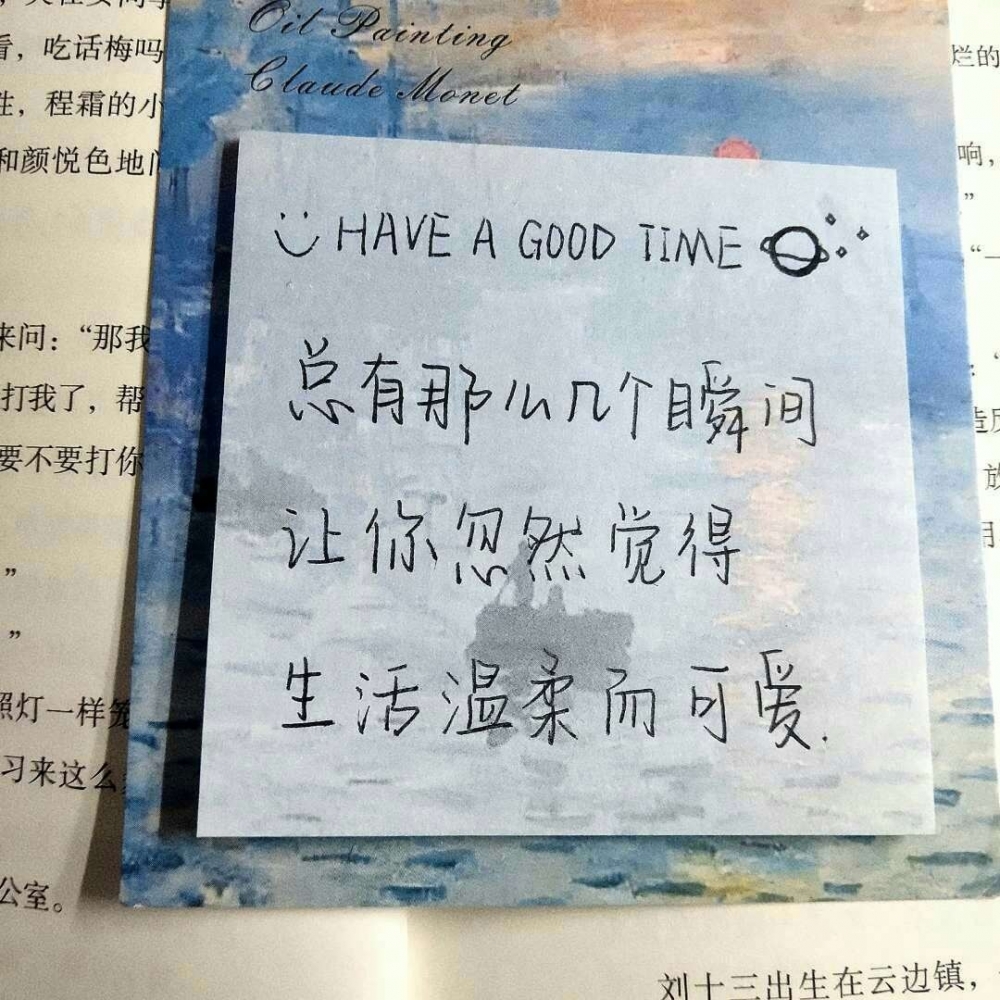 Oil Painting
Claude Monet
HAVE A GOOD TIME
总有那么几个瞬间
让你忽然觉得
生活温柔而可爱.
看，吃话梅吗
程霜的小
和颜悦色地
来问：“那我
打我了，帮
要不要打你
”
”
照灯一样笼
习来这么
公室。
烂的
响，
”
“一
放
刘十三出生在云边镇，